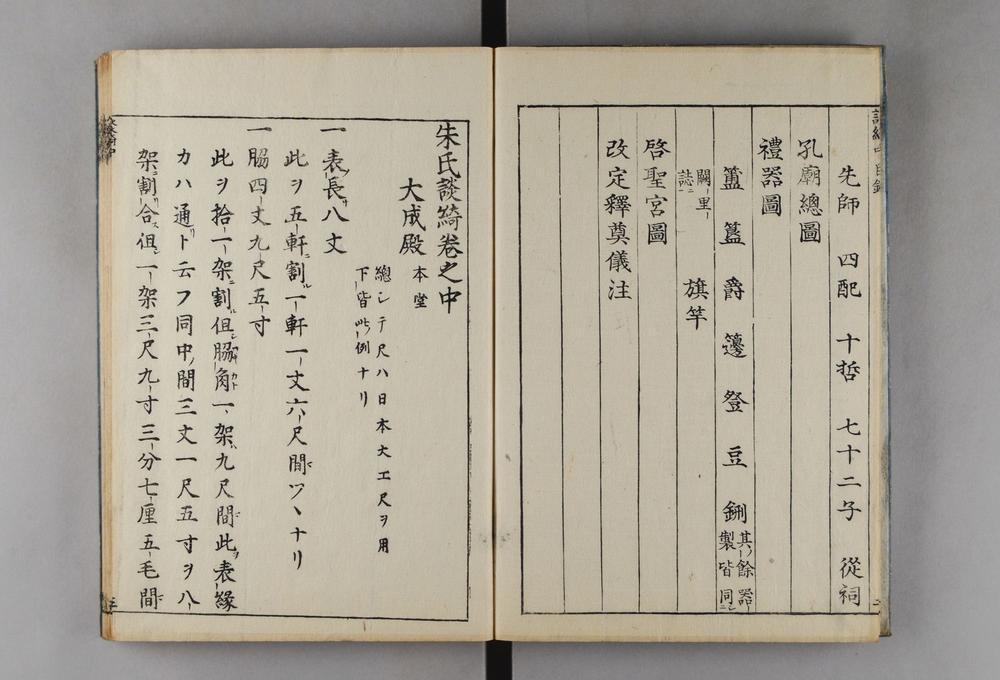 先師　四配　十哲　七十二子　從祠
孔廟總圖
禮器圖
簠　簋　爵　籩　豋　豆　鉶 其ノ餘器製皆同シ
闕里誌ニ　旗竿
啓聖宮圖
改定釋奠儀注
朱氏談綺卷之中
大成殿 本堂 總シテ尺ハ日本大工尺ヲ用下皆此例ナリ
一 表長サ八丈
此ヲ五軒ニ割ル一軒一丈六尺間ツヽナリ
一 脇四丈九尺五寸
此ヲ拾一架ニ割ル但シ脇角カト一架ハ九尺間此ヲ表緣
カハ通リト云フ同中ノ間三丈一尺五寸ヲ八
架ニ割リ合ス但シ一架三尺九寸三分七厘五毛間